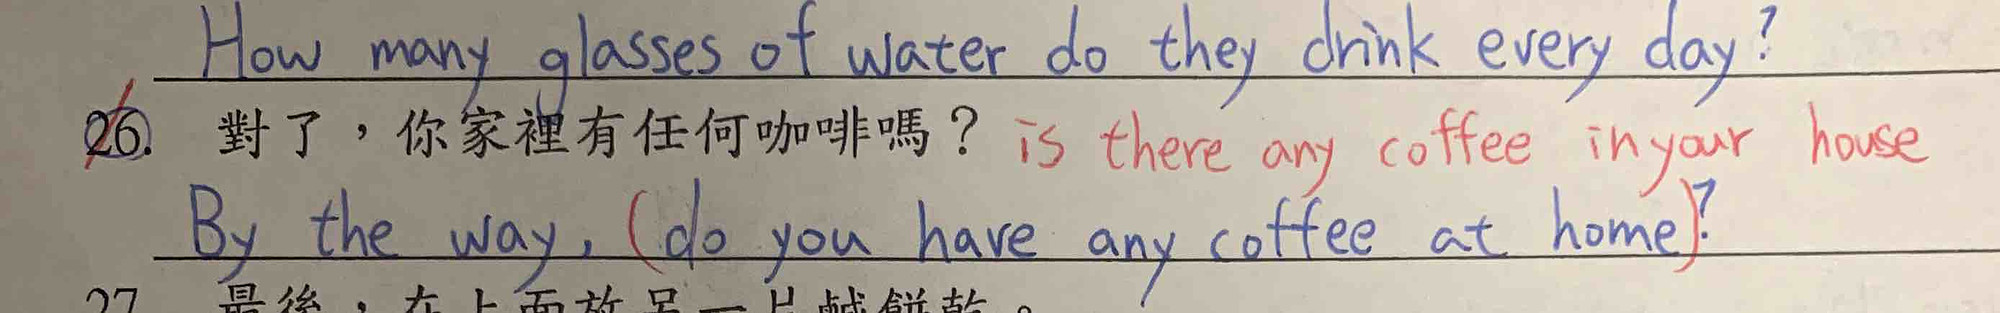 How many glasses of water do they drink every day?
26. 對了，你家裡有任何咖啡嗎？ is there any coffee in your house
By the way, (do you have any coffee at home)?
27. 最後，在上面放另一片鹹餅乾。